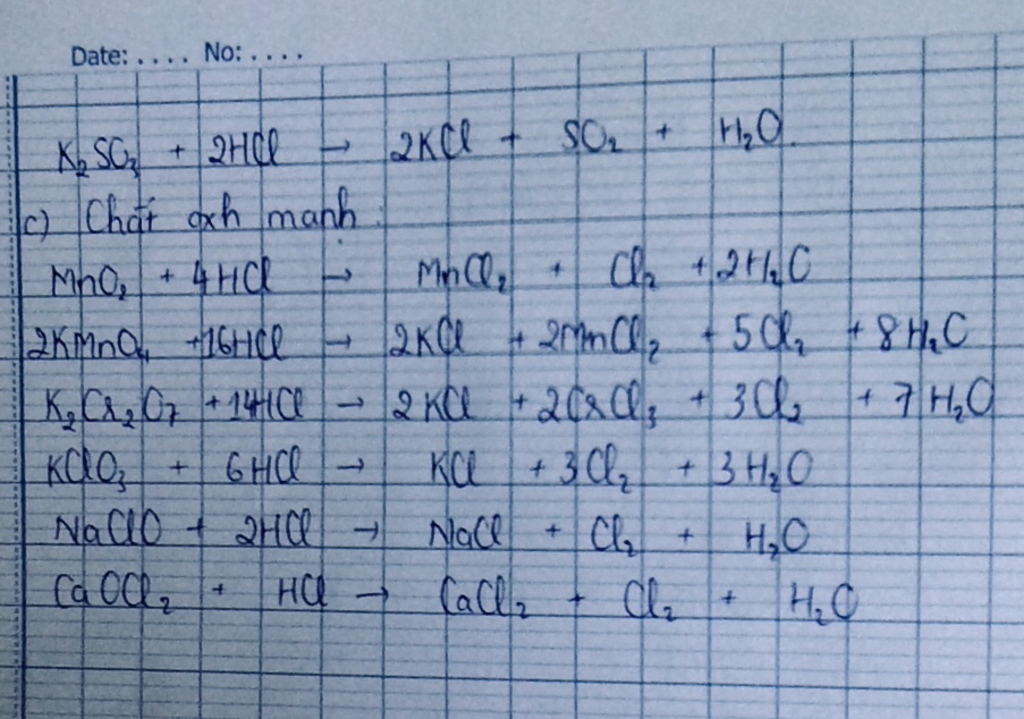 Date: .... No: ....
K₂SO₃ + 2HCl → 2KCl + SO₂ + H₂O.
c) Chất oxh mạnh:
MnO₂ + 4HCl → MnCl₂ + Cl₂ + 2H₂O
2KMnO₄ + 16HCl → 2KCl + 2MnCl₂ + 5Cl₂ + 8H₂O
K₂Cr₂O₇ + 14HCl → 2KCl + 2CrCl₃ + 3Cl₂ + 7H₂O
KClO₃ + 6HCl → KCl + 3Cl₂ + 3H₂O
NaClO + 2HCl → NaCl + Cl₂ + H₂O
CaOCl₂ + HCl → CaCl₂ + Cl₂ + H₂O